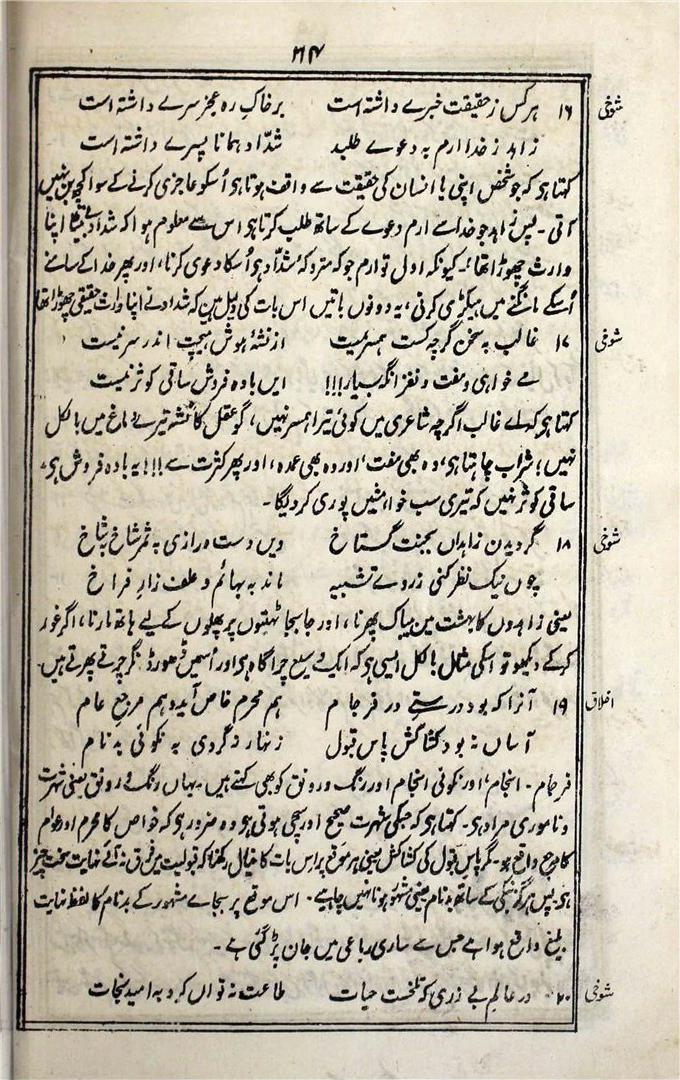 ۲۶۴
شوخی ۱۶ ہر کس ز حقیقت خبرے داشتہ است بر خاکِ رہِ عجز سرے داشتہ است
زاہد ز خدا ارم بہ دعوے طلبد شدّاد ہمانا پسرے داشتہ است
کہتا ہو کہ جو شخص اپنی یا انسان کی حقیقت سے واقف ہوتا ہو اُسکو عاجزی کرنے کے سوا کچھ بن نہیں
آتی ۔ پس زاہد جو خدا سے ارم دعوے کے ساتھ طلب کرتا ہو اس سے معلوم ہوا کہ شداد نے یقیناً اپنا
وارث چھوڑا تھا؛ کیونکہ اول تو ارم جو کہ متروکۂ شدّاد ہو اُسکا دعوی کرنا، اور پھر خدا کے سامنے
اُسکے مانگنے میں ہیکڑی کرنی، یہ دونوں باتیں اس بات کی دلیل ہین کہ شداد نے اپنا وارث حقیقی چھوڑا تھا
شوخی ۱۷ غالب بہ سخن گرچہ کست ہمسر نیست از نشۂ ہوش ہیچت اندر سر نیست
مے خواہی و مفت و نغز انگہ بسیار!!! ایں بادہ فروش ساقیِ کوثر نیست
کہتا ہو کہ اے غالب اگرچہ شاعری میں کوئی تیرا ہمسر نہیں، گو عقل کا نشہ تیرے دماغ میں بالکل
نہیں؛ شراب چاہتا ہو، وہ بھی مفت، اور وہ بھی عمدہ، اور پھر کثرت سے!!! یہ بادہ فروش ہو،
ساقی کوثر نہیں کہ تیری سب خواہشیں پوری کر دیگا ۔
شوخی ۱۸ گردیدن زاہداں بجنت گستاخ ویں دست درازی بہ ثمر شاخ بشاخ
چوں نیک نظر کنی ز روے تشبیہ ماند بہ بہائم و علف زارِ فراخ
یعنی زاہدوں کا بہشت مین بیباک پھرنا، اور جا بجا ٹہنیوں پر پھلوں کے لیے ہاتھ مارنا، اگر غور
کر کے دیکھو تو اسکی مثال بالکل ایسی ہو کہ ایک وسیع چراگاہ ہو اور اُسمیں ڈھور ڈنگر چرتے پھرتے ہیں۔
اخلاق ۱۹ آنرا کہ بود درستے در فرجام ہم محرم خاص آید و ہم مرجعِ عام
آساں نہ بود کشاکش پاس قبول زنہار نگردی بہ نکوئی بدنام
فرجام ۔ انجام، اور نکوئی انجام اور رنگ و رونق کو بھی کہتے ہیں ۔ یہاں رنگ و رونق یعنی شہرت
و ناموری مراد ہو ۔ کہتا ہو کہ جسکی شہرت صحیح اور سچی ہوتی ہو وہ ضرور ہو کہ خواص کا محرم اور عوام
کا مرجع واقع ہو ۔ مگر پاس قبول کی کشاکش یعنی ہر موقع پر اس بات کا خیال رکھنا کہ قبولیت میں فرق نہ آئے نہایت سخت چیز
ہو پس ہرگز نیکی کے ساتھ بدنام یعنی مشہور ہونا نہیں چاہیے ۔ اس موقع پر بجاے مشہور کے بدنام کا لفظ نہایت
بلیغ واقع ہوا ہے جس سے ساری رباعی میں جان پڑ گئی ہے ۔
شوخی ۲۰ در عالمِ بے زری کہ تلخست حیات طاعت نہ تواں کرد بہ امیدِ نجات